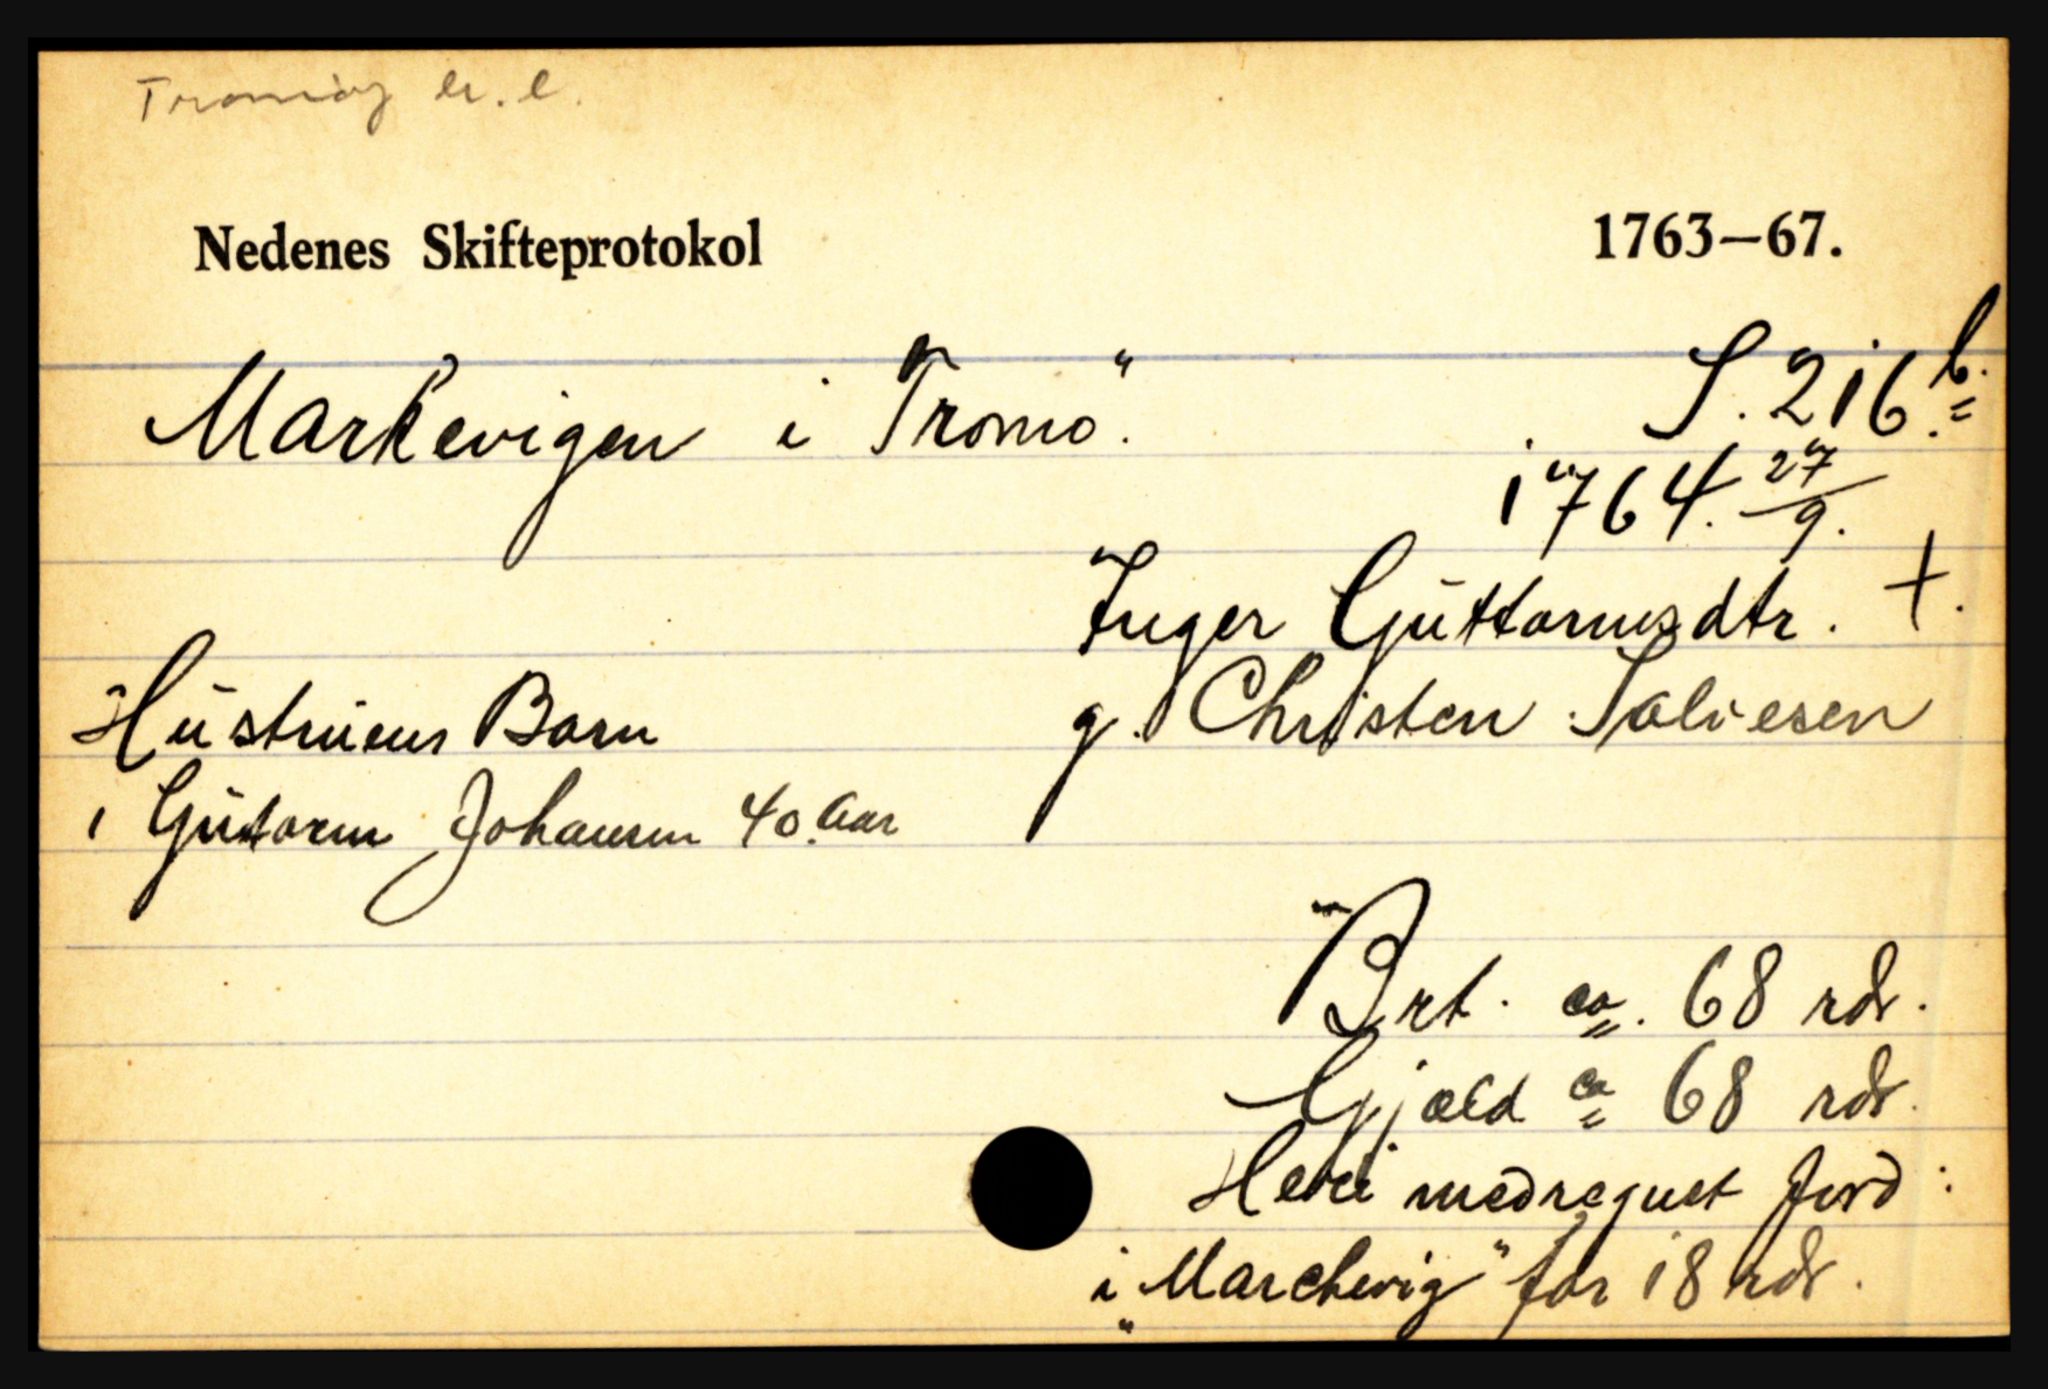 Tromøy
Nedenes Skifteprotokol 1763–67.
Markevigen i "Tromø". S. 216 b.
1764. 27/9.
Inger Guttormsdtr. +.
Hustruens Born g. Christen Salvesen
1 Gutorm Johansen 40 Aar
Brt. ca. 68 rdr.
Gjæld ca 68 rdr.
Heri medregnet Jord:
i "Marchevig" for 18 rdr.